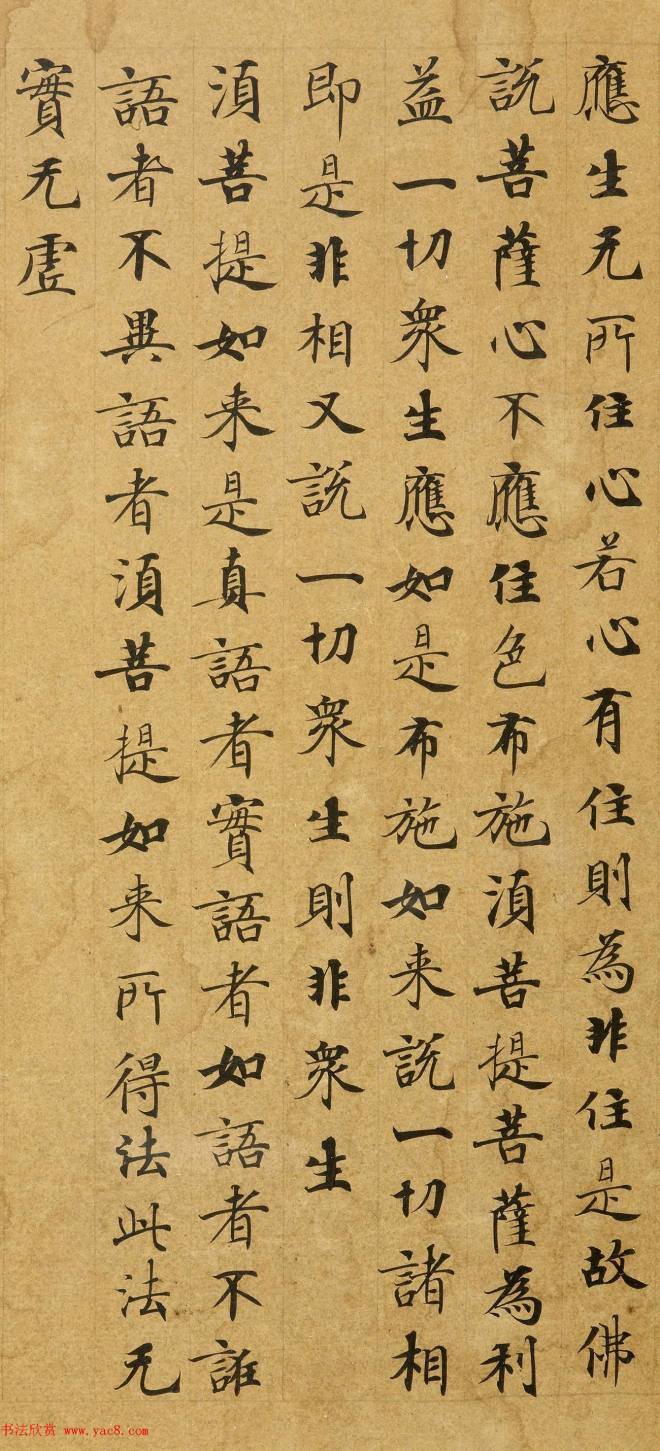 應生无所住心若心有住則為非住是故佛
說菩薩心不應住色布施須菩提菩薩為利
益一切衆生應如是布施如来說一切諸相
即是非相又說一切衆生則非衆生
須菩提如来是真語者實語者如語者不誑
語者不異語者須菩提如来所得法此法无
實无虛
书法欣赏 www.yac8.com